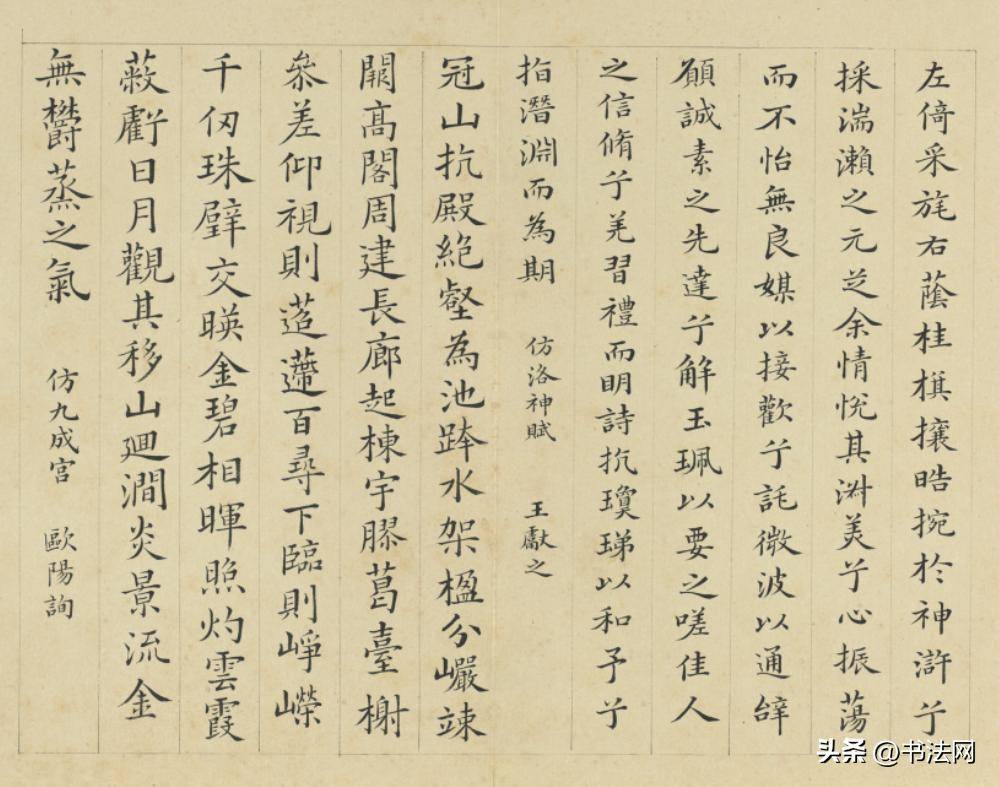 左倚采旄右蔭桂旗攘晧捥於神滸兮
採湍瀬之元芝余情悅其淑美兮心振蕩
而不怡無良媒以接歡兮託微波以通辝
願誠素之先達兮解玉珮以要之嗟佳人
之信脩兮羌習禮而明詩抗瓊珶以和予兮
指潛淵而為期 仿洛神賦 王獻之
冠山抗殿絶壑為池跨水架楹分巖竦
闕高閣周建長廊起棟宇膠葛臺榭
叅差仰視則迢遰百尋下臨則崢嶸
千仞珠壁交暎金碧相暉照灼雲霞
蔽虧日月觀其移山迴澗炎景流金
無鬱蒸之氣 仿九成宮 歐陽詢
头条 @书法网